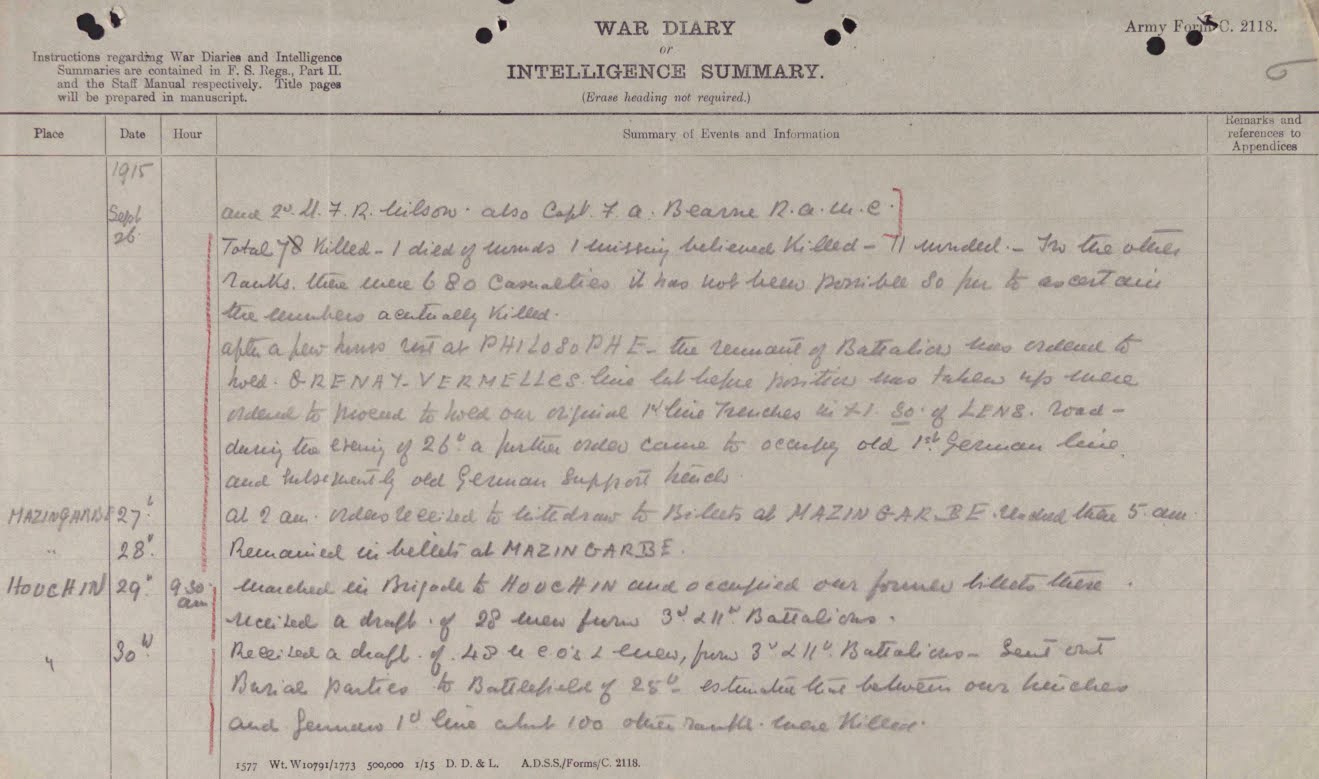 WAR DIARY
or
INTELLIGENCE SUMMARY.
(Erase heading not required.)
Army Form C. 2118.
6
Instructions regarding War Diaries and Intelligence
Summaries are contained in F. S. Regs., Part II.
and the Staff Manual respectively. Title pages
will be prepared in manuscript.
Place Date Hour Summary of Events and Information Remarks and references to Appendices
1915
Sept 26. and 2nd Lt. F. R. Wilson. also Capt. F. A. Bearne R.A.M.C.
Total 8 Killed - 1 died of wounds 1 missing believed Killed - 11 wounded. - In the other
ranks. there were 680 Casualties it has not been possible so far to ascertain
the numbers acutually Killed.
after a few hours rest at PHILOSOPHE - the remnant of Battalion was ordered to
hold. GRENAY-VERMELLES line but before position was taken up were
ordered to proceed to hold our original 1st line Trenches in So. of LENS. road -
during the evening of 26th a further order came to occupy old 1st German line
and subsequently old German Support trench.
MAZINGARBE 27th at 2 am. orders received to withdraw to Billets at MAZINGARBE. reached there 5. am.
" 28th Remained in billets at MAZINGARBE.
HOUCHIN 29th 9.30 am marched in Brigade to HOUCHIN and occupied our former billets there.
received a draft of 28 men from 3rd & 11th Battalions.
" 30th Received a draft. of. 48 N.C.O's & men, from 3rd & 11th Battalions - Sent out
Burial Parties to Battlefield of 25th - estimated that between our trenches
and German 1st line about 100 other ranks. were Killed.
1577 Wt. W10791/1773 500,000 1/15 D. D. & L. A.D.S.S./Forms/C. 2118.